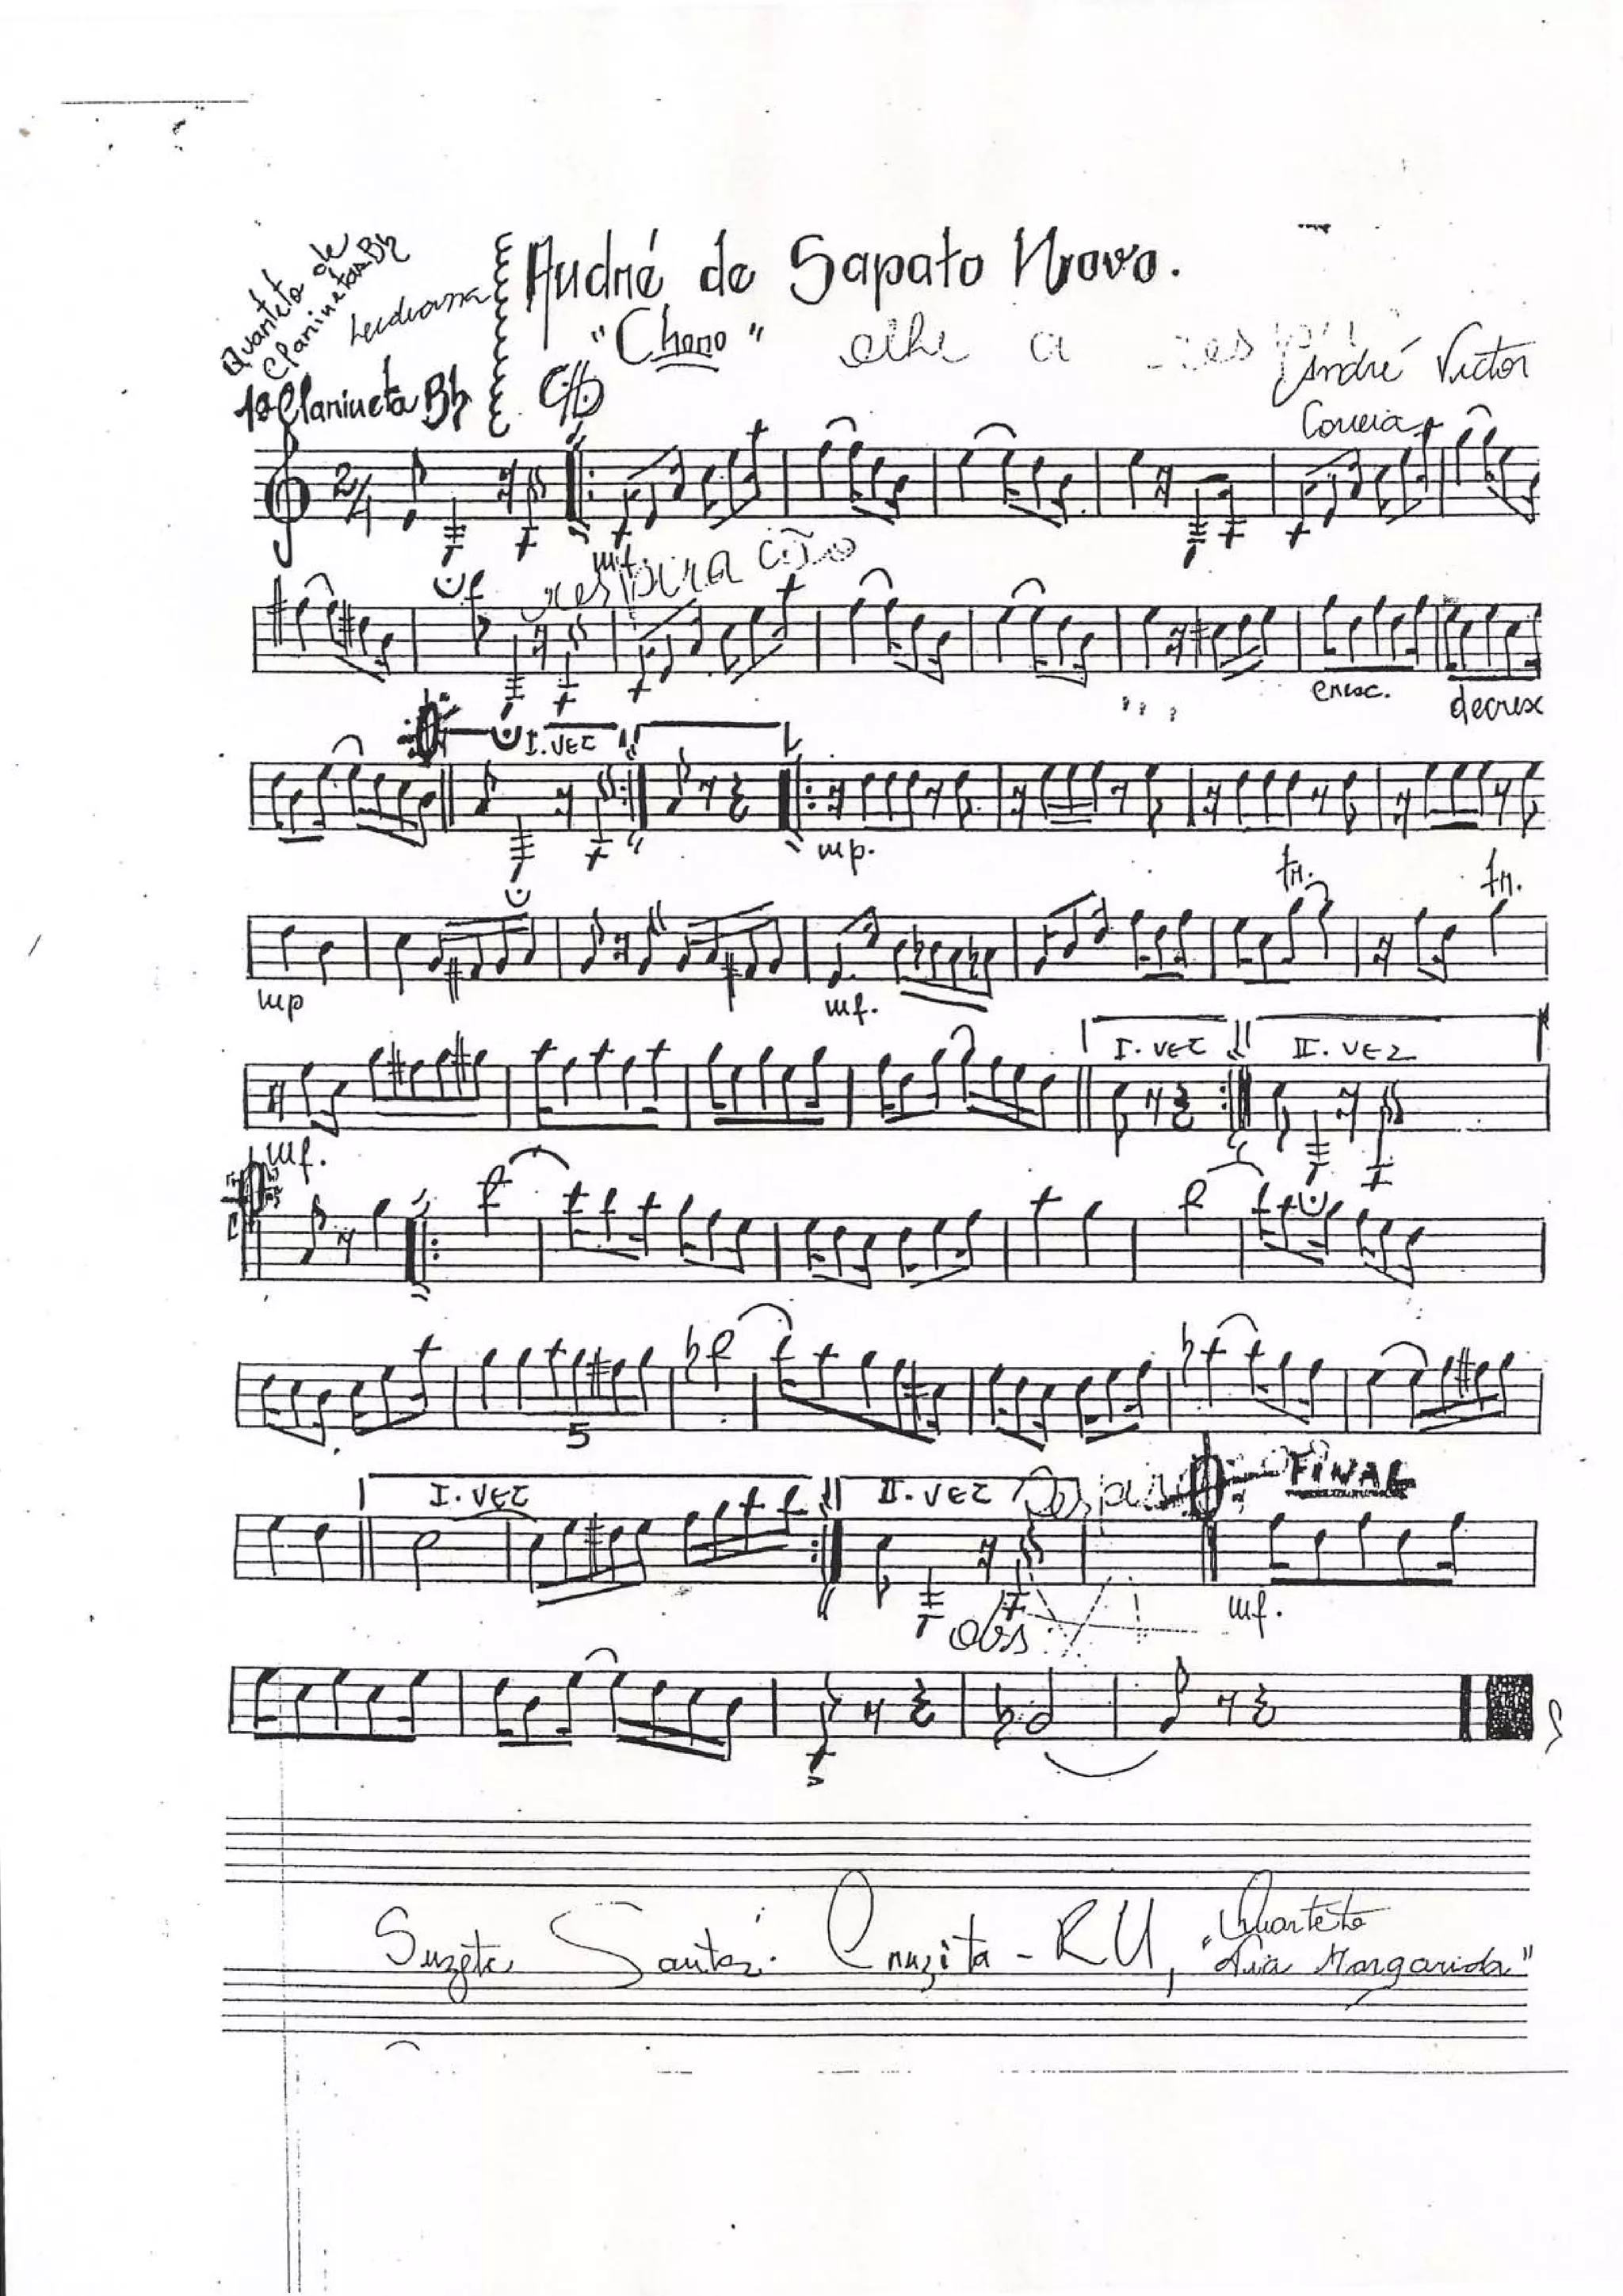 Quarteto de
Clarinetas Bb
André de Sapato Novo.
"Choro"
olhe a
André Victor
Correia
1º Clarineta Bb
2/4
mf.
respiração
cresc.
decresc
I. VEZ
mp.
tr.
tr.
mp
mf.
I. VEZ
II. VEZ
mf.
5
I. VEZ
II. VEZ
FINAL
mf.
obs
Suzete Santos Cruzita - RU, "Quarteto
Lia Margarida"